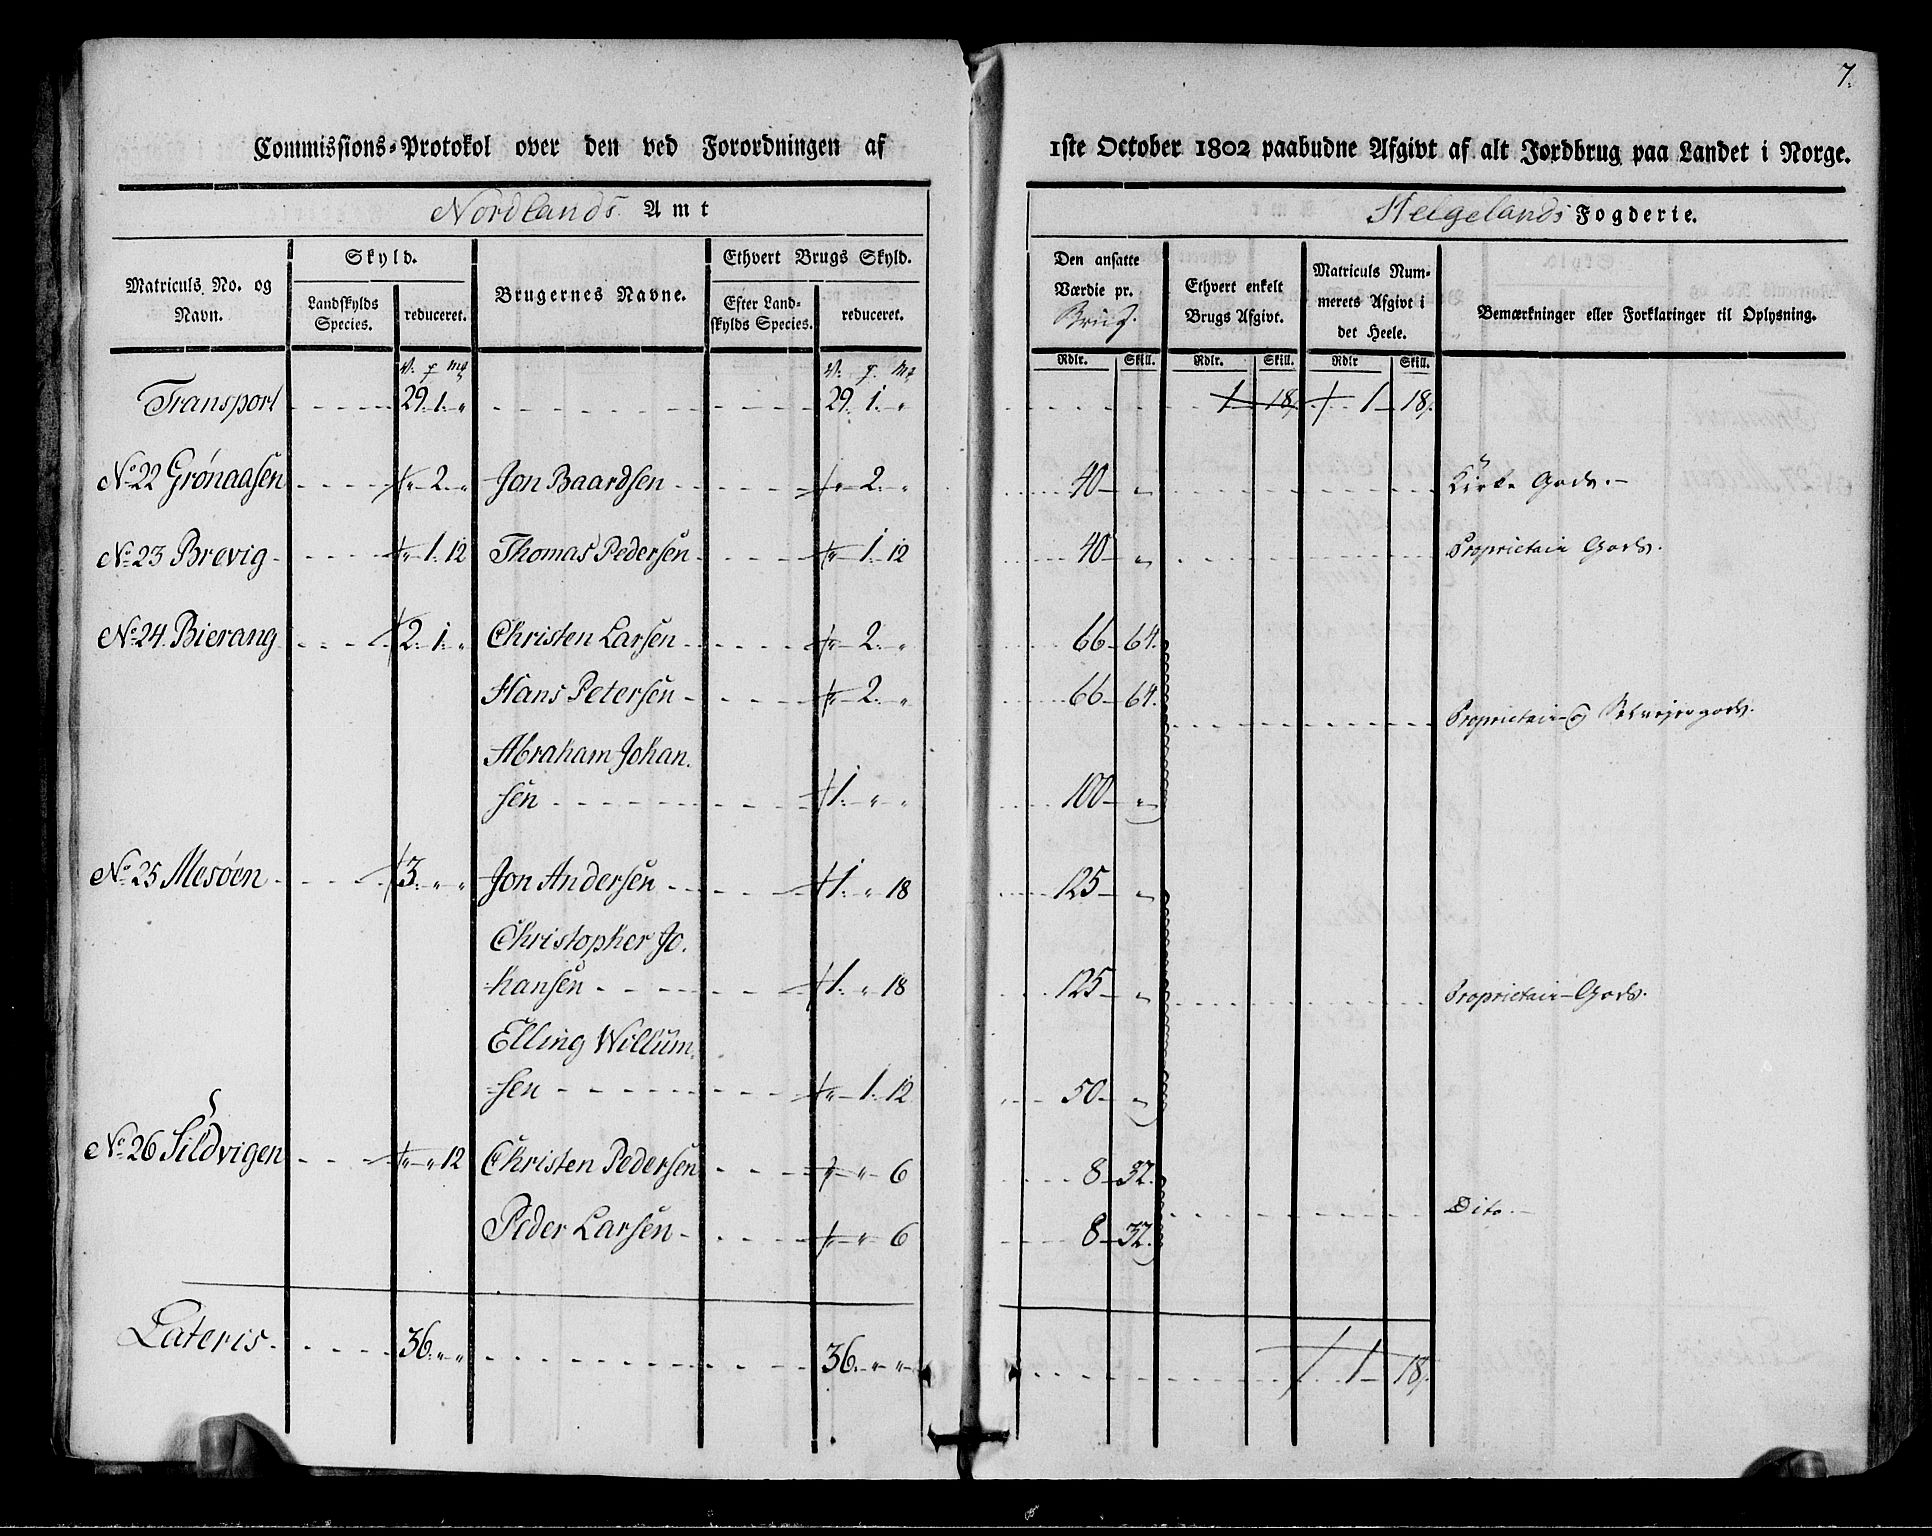 7.
Commissions-Protokol over den ved Forordningen af 1ste October 1802 paabudne Afgivt af alt Jordbrug paa Landet i Norge.
Nordlands Amt Helgelands Fogderie.
Matriculs No. og Navn. Skyld. Landskylds Species. reduceret. Brugernes Navne. Ethvert Brugs Skyld. Efter Landskylds Species. reduceret. Den ansatte Værdie pr. Brug. Ethvert enkelt Brugs Afgivt. Matriculs Nummerets Afgivt i det Heele. Bemærkninger eller Forklaringer til Oplysning.
Rdlr. Skill. Rdlr. Skill. Rdlr Skill.
Transport 29. 1. " 29. 1. " 1 18. 1 18.
No. 22 Grønaasen " 2. " Jon Baardsen " 2. " 40 " Kirke Gods.
No. 23 Brevig " 1. 12 Thomas Pedersen " 1. 12 40 " Proprietair Gods.
No. 24. Bierang 2. 1. " Christen Larsen " 2. " 66 64.
Hans Petersen " 2. " 66 64. Proprietair- og Selveiergods.
Abraham Johan.
sen 1. " " 100 "
No. 25 Mesøen 3. " " Jon Andersen 1. " 18 125 "
Christopher Jo.
hansen 1. " 18 125 " Proprietair-Gods.
Elling Willum-
sen " 1. 12 50 "
No. 26 Sildvigen " " 12 Christen Pedersen " " 6 8 32.
Peder Larsen " " 6 8 32. Dito.
Lateris. 36. " " 36. " " 1 18.